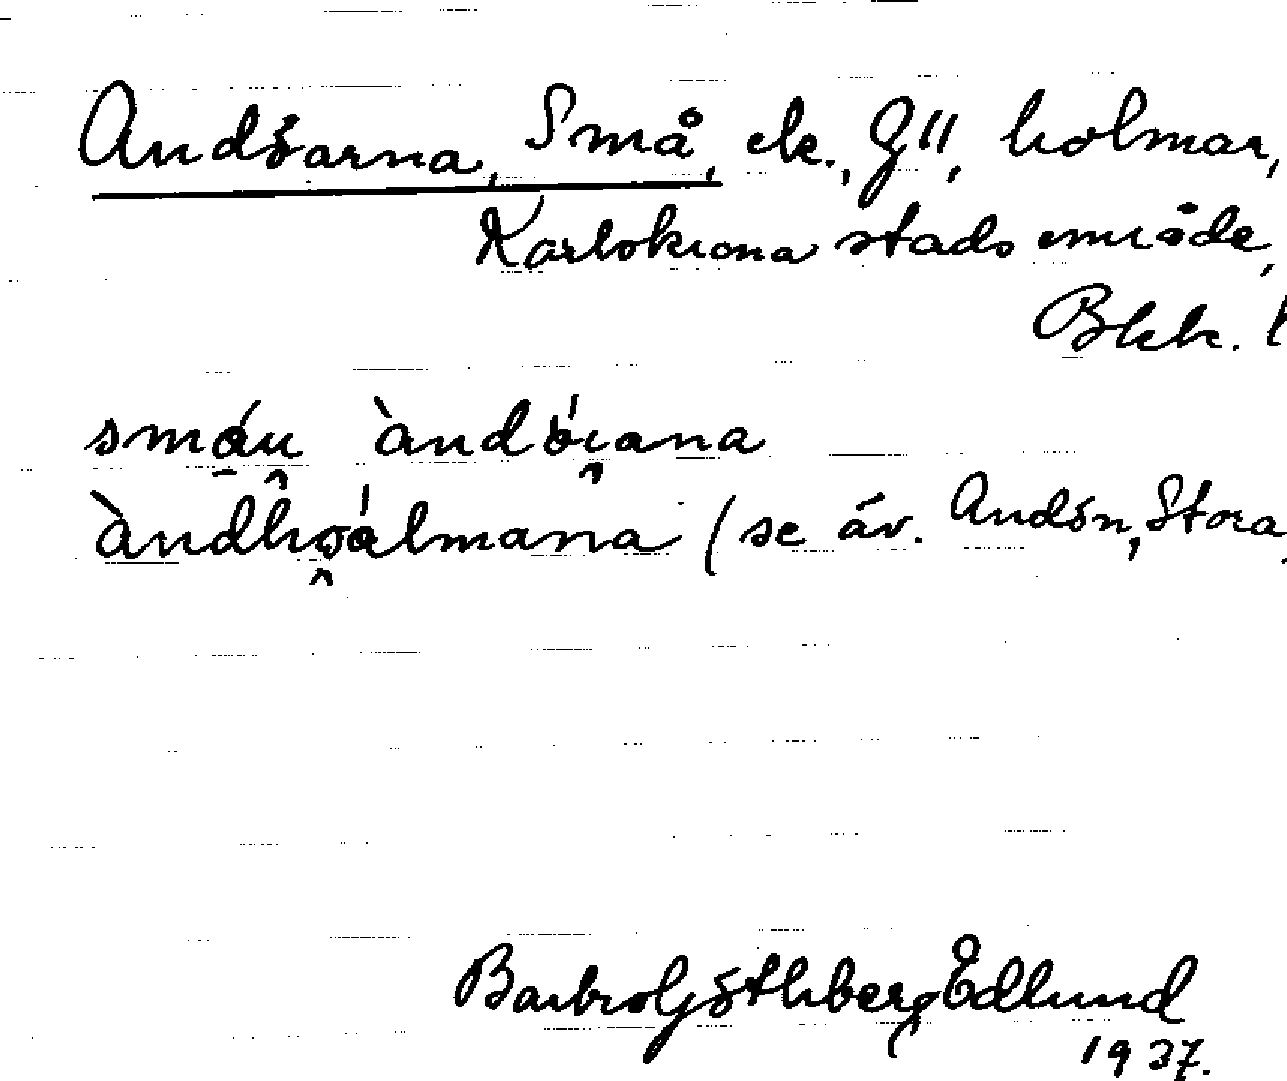 Andöarna, Små, ek., G11, holmar,
Karlskrona stads område,
Blek.
småu̯ àndöi̯ana
àndhoálmana (se äv. Andön, Stora,
Barbro Göthberg Edlund
1937.